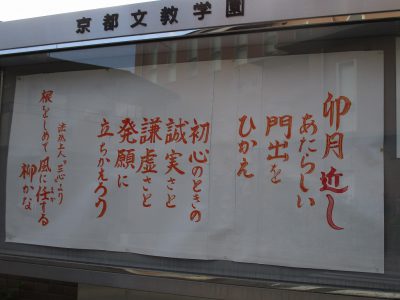 京都文教学園
卯月近し
あたらしい
門出を
ひかえ
初心のときの
誠実さと
謙虚さと
発願に
立ちかえろう
法然上人"三心"より
根をしめて風に任する
柳かな